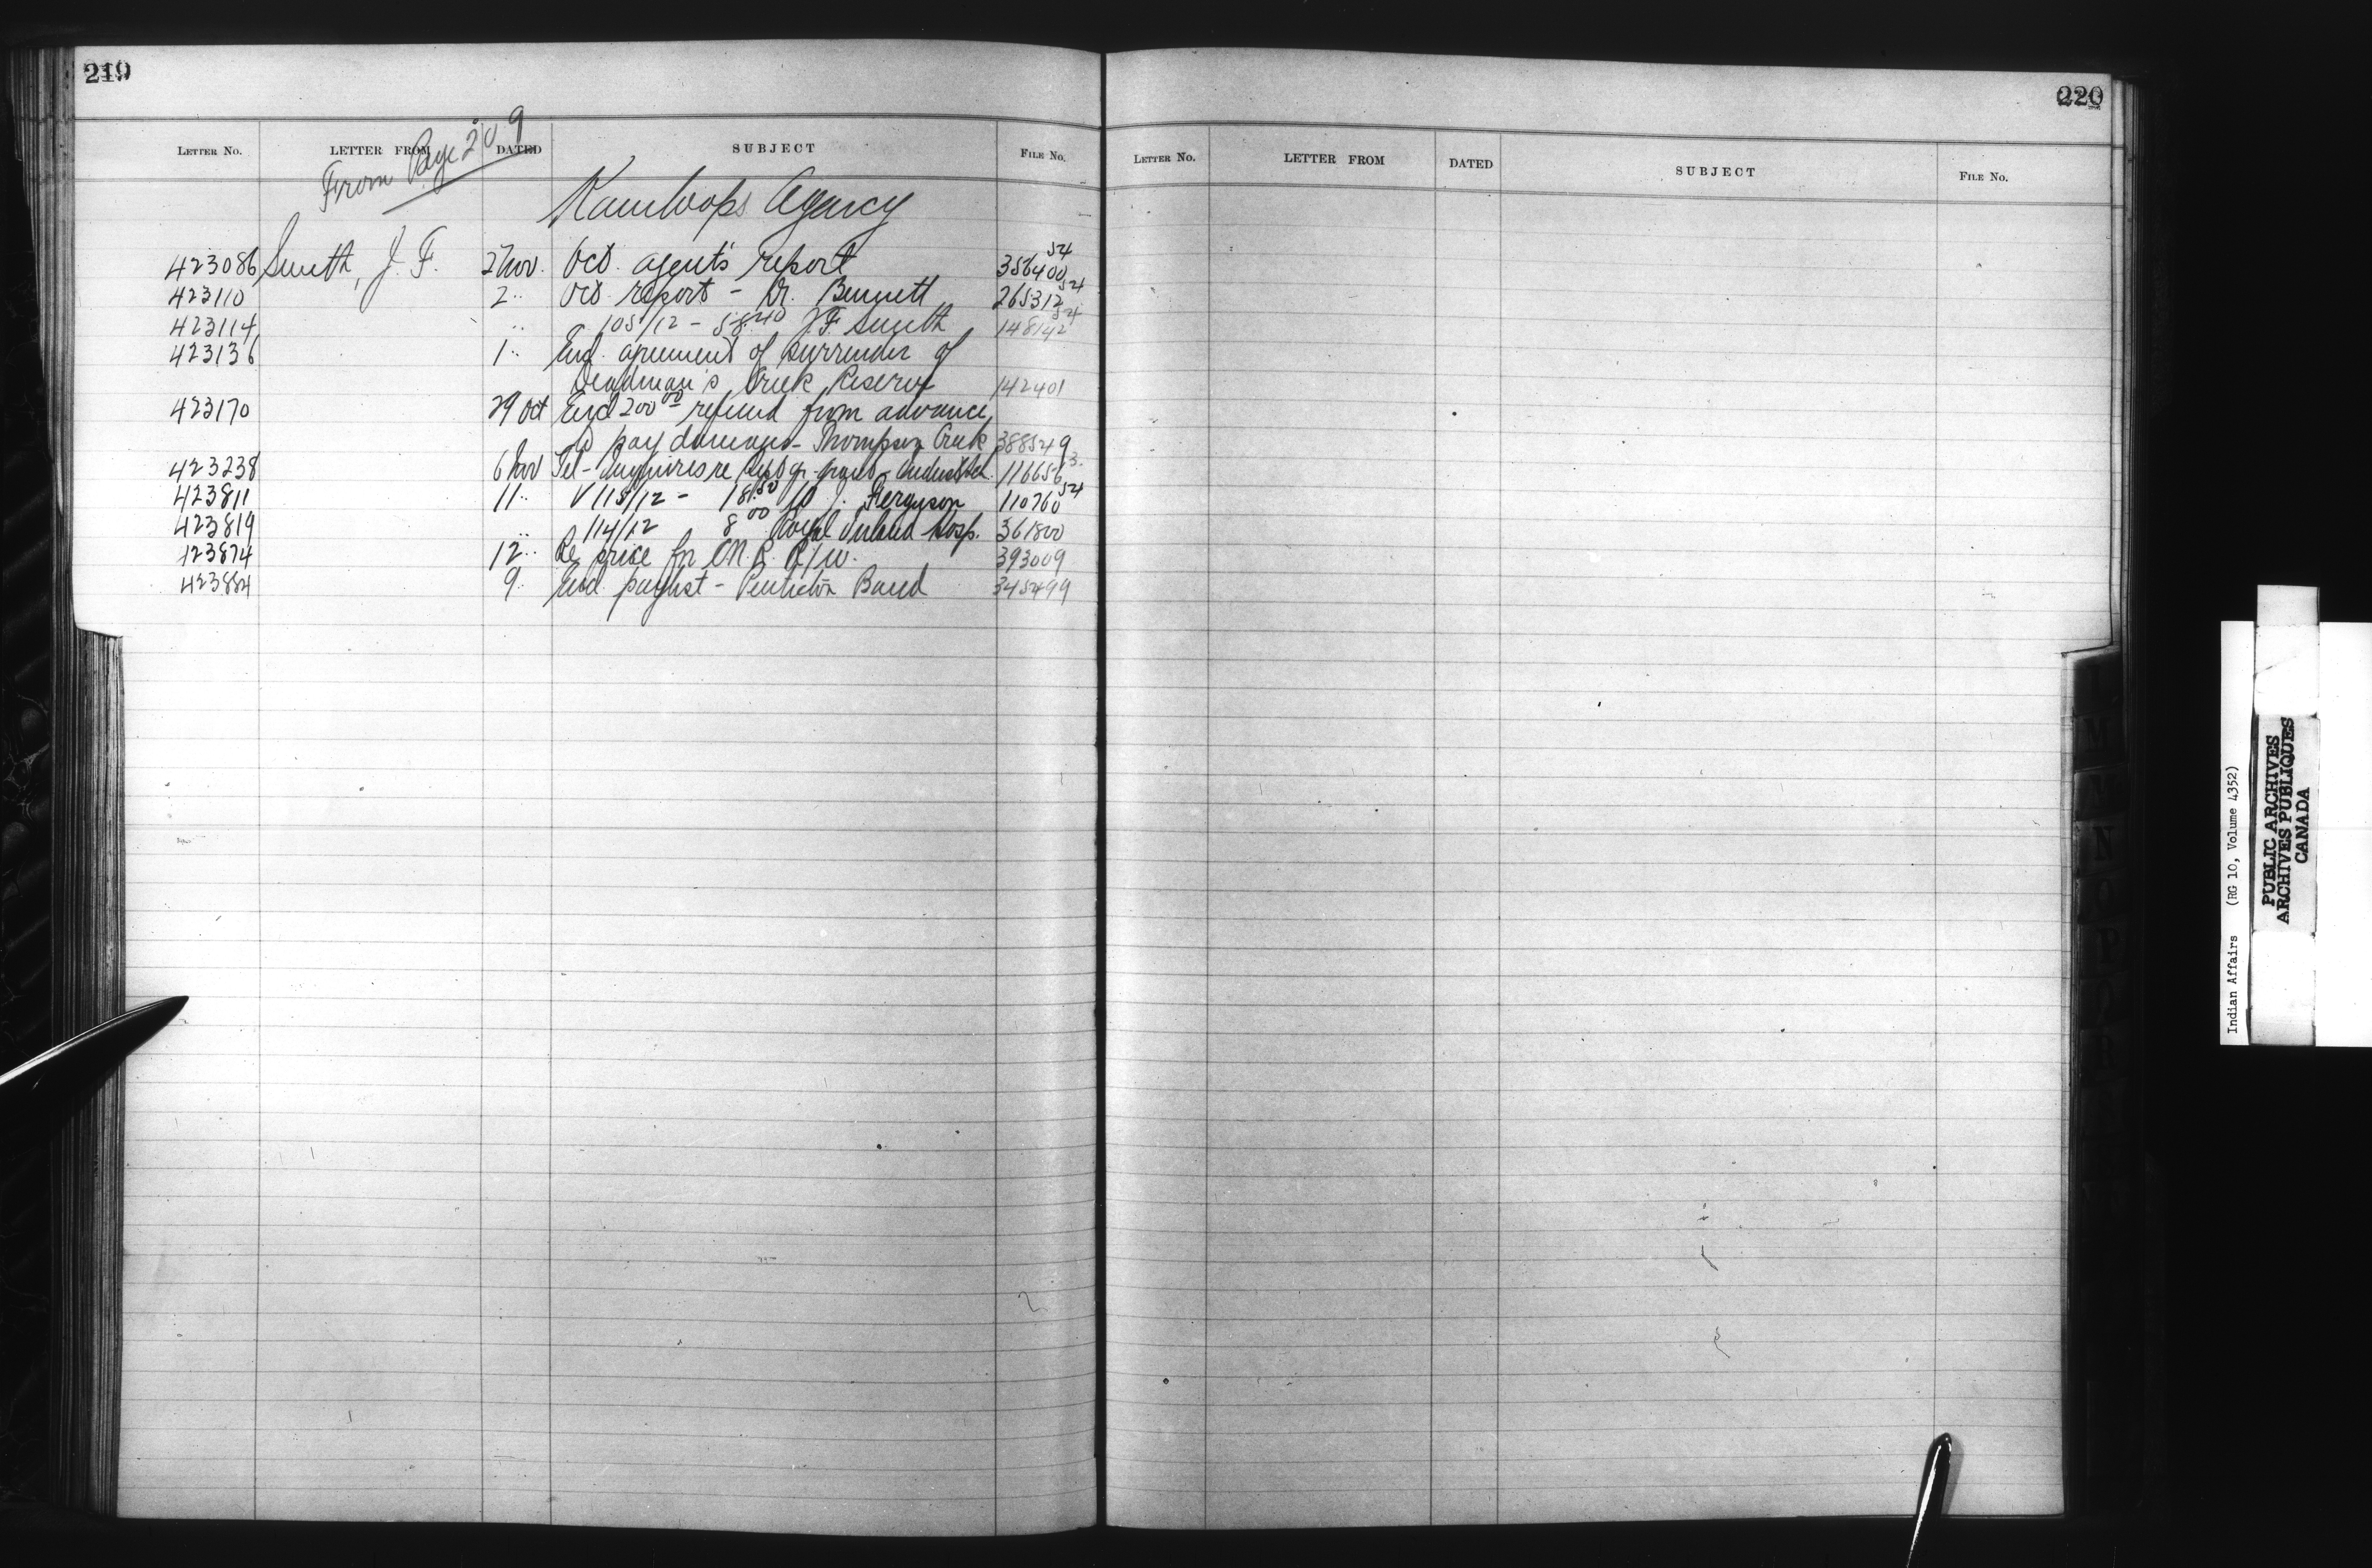 219
220
LETTER NO. LETTER FROM DATED SUBJECT FILE NO.
LETTER NO. LETTER FROM DATED SUBJECT FILE NO.
From Page 209
Kamloops Agency
423086 Smith, J. F. 2 Nov. Oct. agent's report 356400 54
423110 2 " Oct. report - Dr. Bennett 265312 54
423114 " 105/12 - 58.40 J. F. Smith 148142 54
423136 1 " Encl. agreement of surrender of
Deadman's Creek Reserve 142401
423170 29 Oct Encl 200.00 - refund from advance
to pay damages - Thompson Creek 388549
423238 6 Nov Tel - Inquires re grant - 116656 3
423811 11 " V 115/12 - 18.50 J. Ferguson 110760 54
423819 " 114/12 8 00 Royal Inland Hosp. 361800
423874 12 " Re price for C.N.R. R/W. 393009
423884 9 " Encl. paylist - Penticton Band 345499
Indian Affairs (RG 10, Volume 4352)
PUBLIC ARCHIVES
ARCHIVES PUBLIQUES
CANADA
M
N
N
O
P
Q
R